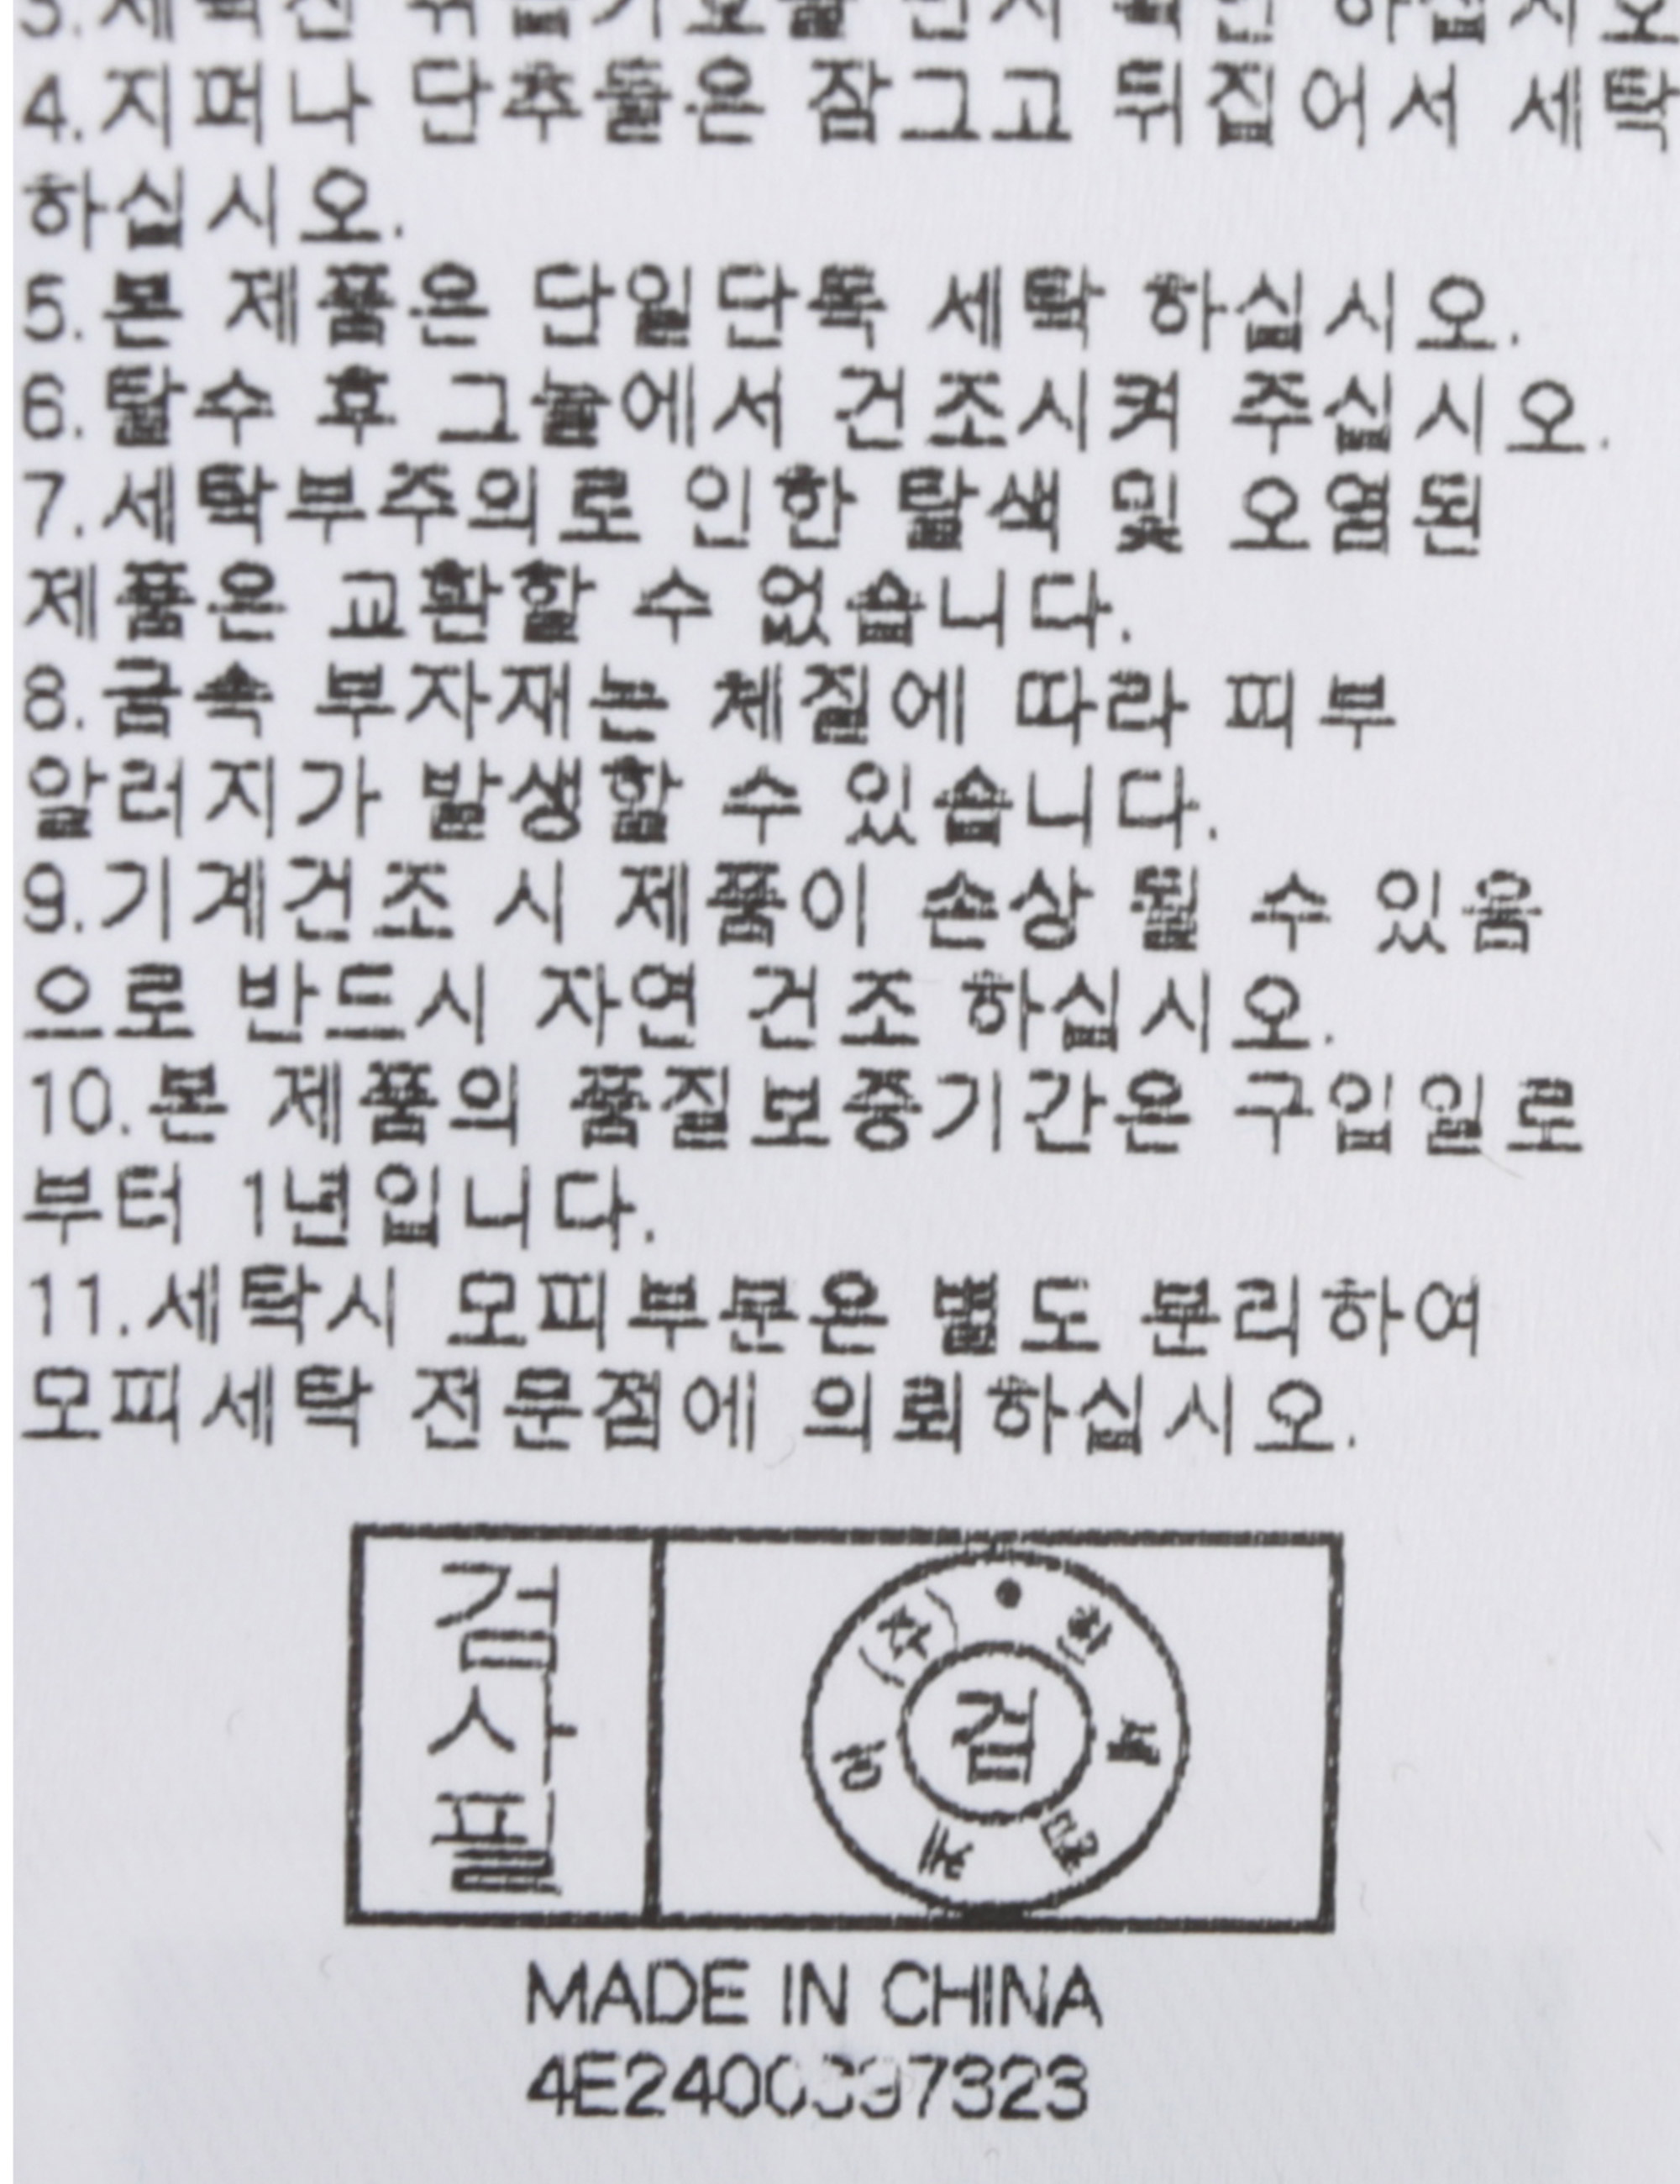 3.세탁전 취급기호를 먼저 확인 하십시오
4.지퍼나 단추들은 잠그고 뒤집어서 세탁
하십시오.
5.본 제품은 단일단독 세탁 하십시오.
6.탈수 후 그늘에서 건조시켜 주십시오.
7.세탁부주의로 인한 탈색 및 오염된
제품은 교환할 수 없습니다.
8.금속 부자재는 체질에 따라 피부
알러지가 발생할 수 있습니다.
9.기계건조 시 제품이 손상 될 수 있음
으로 반드시 자연 건조 하십시오.
10.본 제품의 품질보증기간은 구입일로
부터 1년입니다.
11.세탁시 모피부분은 별도 분리하여
모피세탁 전문점에 의뢰하십시오.
검사필
검
MADE IN CHINA